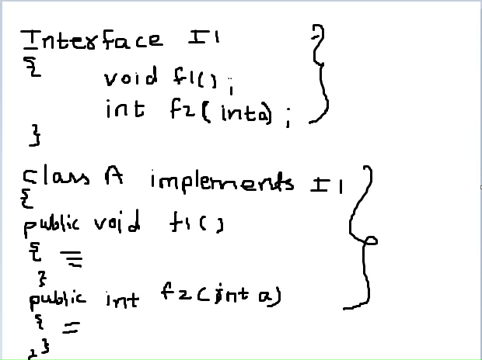 Interface I1
{
void f1();
int f2(int a);
}
class A implements I1
{
public void f1()
{ =
}
public int f2(int a)
{ =
}
}